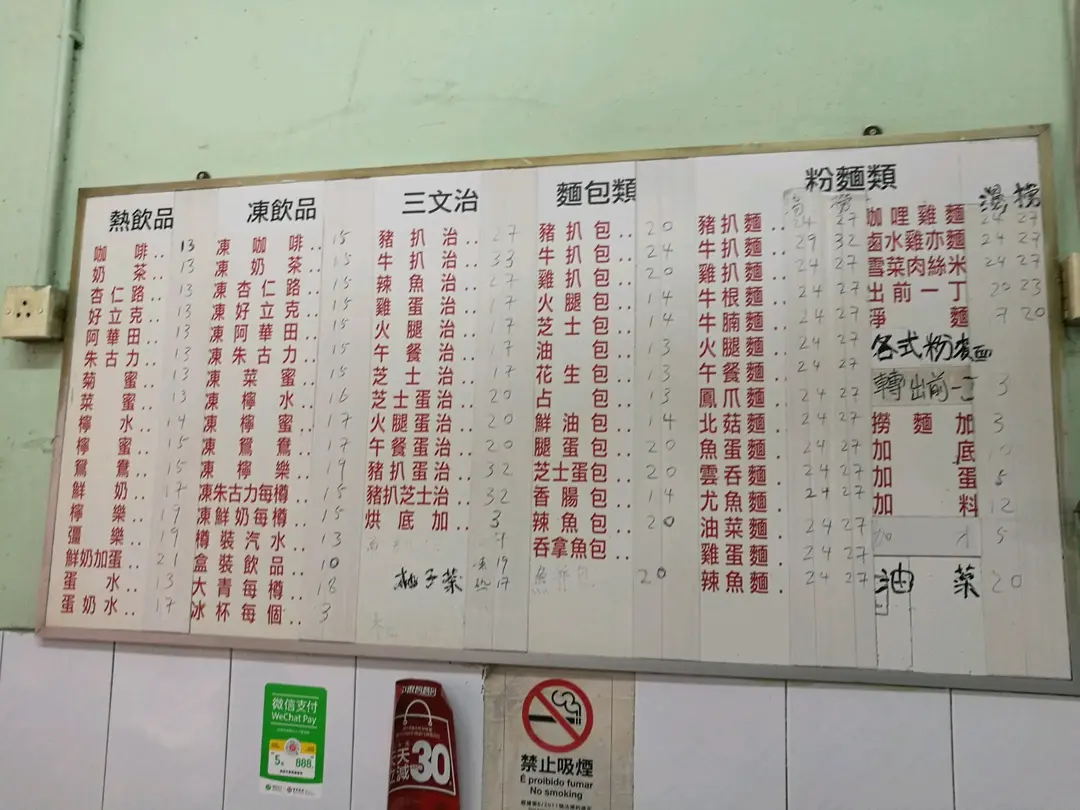 熱飲品
咖啡.. 13
奶茶.. 13
杏仁路.. 13
好立克.. 13
阿華田.. 13
朱古力.. 13
菊蜜.. 13
菜蜜.. 13
檸水.. 14
檸蜜.. 15
鴛鴦.. 15
鮮奶.. 17
檸樂.. 19
彌樂.. 19
鮮奶加蛋.. 21
蛋水.. 13
蛋奶水.. 17
凍飲品
凍咖啡.. 15
凍奶茶.. 15
凍杏仁路.. 15
凍好立克.. 15
凍阿華田.. 15
凍朱古力.. 15
凍菜蜜.. 15
凍檸水.. 16
凍檸蜜.. 17
凍鴛鴦.. 17
凍檸樂.. 19
凍朱古力每樽.. 15
凍鮮奶每樽.. 15
樽裝汽水.. 13
盒裝飲品.. 10
大青每樽.. 18
冰杯每個.. 3
三文治
豬扒治.. 27
牛扒治.. 33
辣魚治.. 27
雞蛋治.. 17
火腿治.. 17
午餐治.. 17
芝士治.. 17
芝士蛋治.. 20
火腿蛋治.. 20
午餐蛋治.. 20
豬扒蛋治.. 32
豬扒芝士治.. 32
烘底加.. 3
柚子菜 19
熱 17
麵包類
豬扒包.. 20
牛扒包.. 24
雞扒包.. 20
火腿包.. 14
芝士包.. 14
油包.. 13
花生包.. 13
占包.. 13
鮮油包.. 14
腿蛋包.. 20
芝士蛋包.. 20
香腸包.. 14
辣魚包.. 20
吞拿魚包..
20
粉麵類
豬扒麵.. 24 27
牛扒麵.. 29 32
雞扒麵.. 24 27
牛根麵.. 24 27
牛腩麵.. 24 27
火腿麵.. 24 27
午餐麵.. 24 27
鳳爪麵.. 24 27
北菇麵.. 24 27
魚蛋麵.. 24 27
雲吞麵.. 24 27
尤魚麵.. 24 27
油菜麵.. 24 27
雞蛋麵.. 24 27
辣魚麵.. 24 27
湯 撈
咖哩雞麵 24 27
鹵水雞亦麵 24 27
雪菜肉絲米 24 27
出前一丁 20 23
淨麵 20
各式粉麵
轉出前一丁 3
撈麵加 3
加底 10
加蛋 5
加料 12
加 5
油菜 20
微信支付
WeChat Pay
5 888
天天
立減30
禁止吸煙
É proibido fumar
No smoking